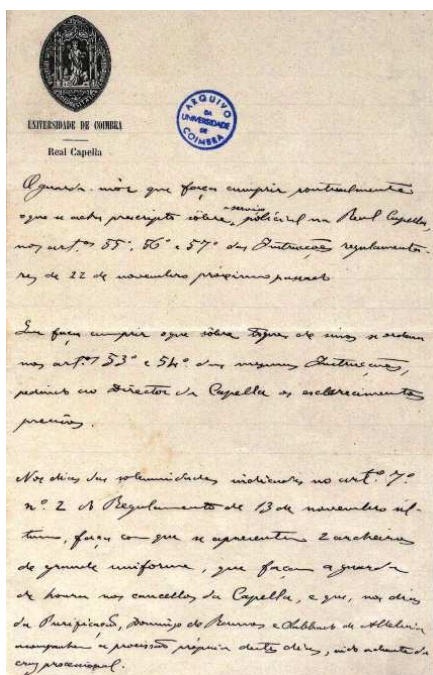 UNIVERSIDADE DE COIMBRA
Real Capella
ARQUIVO
DA
UNIVERSIDADE
DE
COIMBRA
O guarda-mór que faça cumprir pontualmente
o que se acha prescripto sôbre o serviço policial na Real Capella,
nos art.os 55º, 56º e 57º das Instrucções regulamenta-
res de 22 de novembro proximo passado
Que faça cumprir o que sôbre toques de sinos se ordena
nos art.os 53º e 54º das mesmas Instrucções,
pedindo ao Director da Capella os esclarecimentos
precisos.
Nos dias das solemnidades indicadas no art.º 7º
nº 2 do Regulamento de 13 de novembro ul-
timo, faça com que se apresentem 2 archeiros
de grande uniforme, que façam a guarda
de honra nos cancellos da Capella, e que, nos dias
da Purificação, Domingo de Ramos e Sabbado de Alleluia
acompanhem a procissão própria destes dias, indo adeante da
cruz processional.